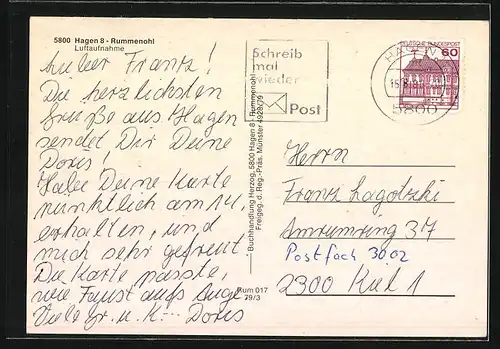 5800 Hagen 8 - Rummenohl
Luftaufnahme
Lieber Franz!
Die herzlichsten
Grüße aus Hagen
sendet Dir Deine
Doris!
Habe Deine Karte
pünktlich am 14.
erhalten, und
mich sehr gefreut.
Die Karte passte,
wie Faust aufs Auge
Viele Gr. u. K... Doris
Buchhandlung Herzog, 5800 Hagen 8 - Rummenohl
Freigeg. d. Reg.-Präs. Münster 4928/79
Rum 017
79/3
Schreib
mal
wieder
Post
5800
DEUTSCHE BUNDESPOST
60
Herrn
Franz Lagotzki
Amrumring 37
Postfach 3002
2300 Kiel 1